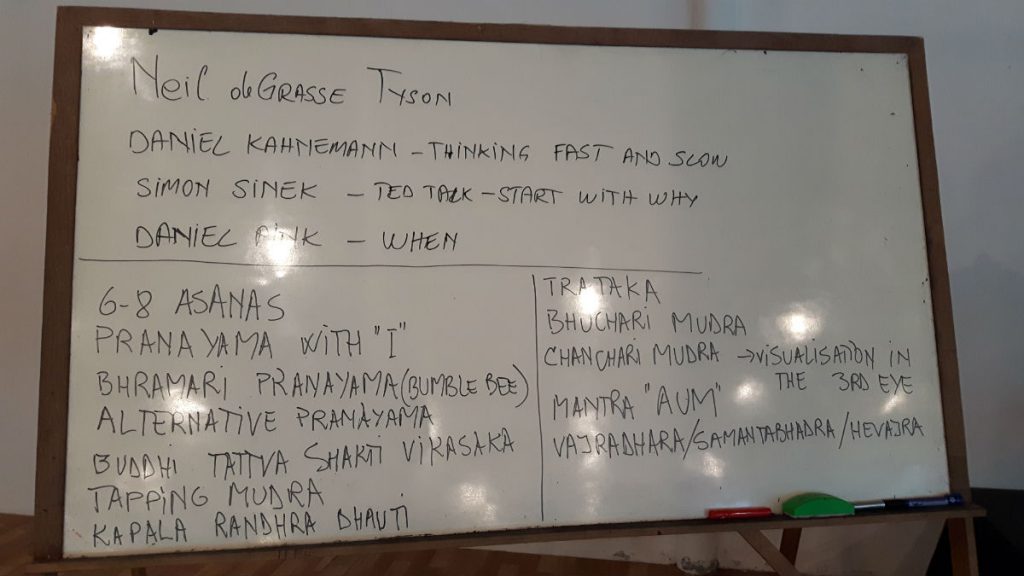 Neil deGRASSE TYSON
DANIEL KAHNEMANN - THINKING FAST AND SLOW
SIMON SINEK - TED TALK - START WITH WHY
DANIEL PINK - WHEN
6-8 ASANAS
PRANAYAMA WITH "I"
BHRAMARI PRANAYAMA (BUMBLE BEE)
ALTERNATIVE PRANAYAMA
BUDDHI TATTVA SHAKTI VIKASAKA
TAPPING MUDRA
KAPALA RANDHRA DHAUTI
TRATAKA
BHUCHARI MUDRA
CHANCHARI MUDRA → VISUALISATION IN
THE 3RD EYE
MANTRA "AUM"
VAJRADHARA/SAMANTABHADRA/HEVAJRA